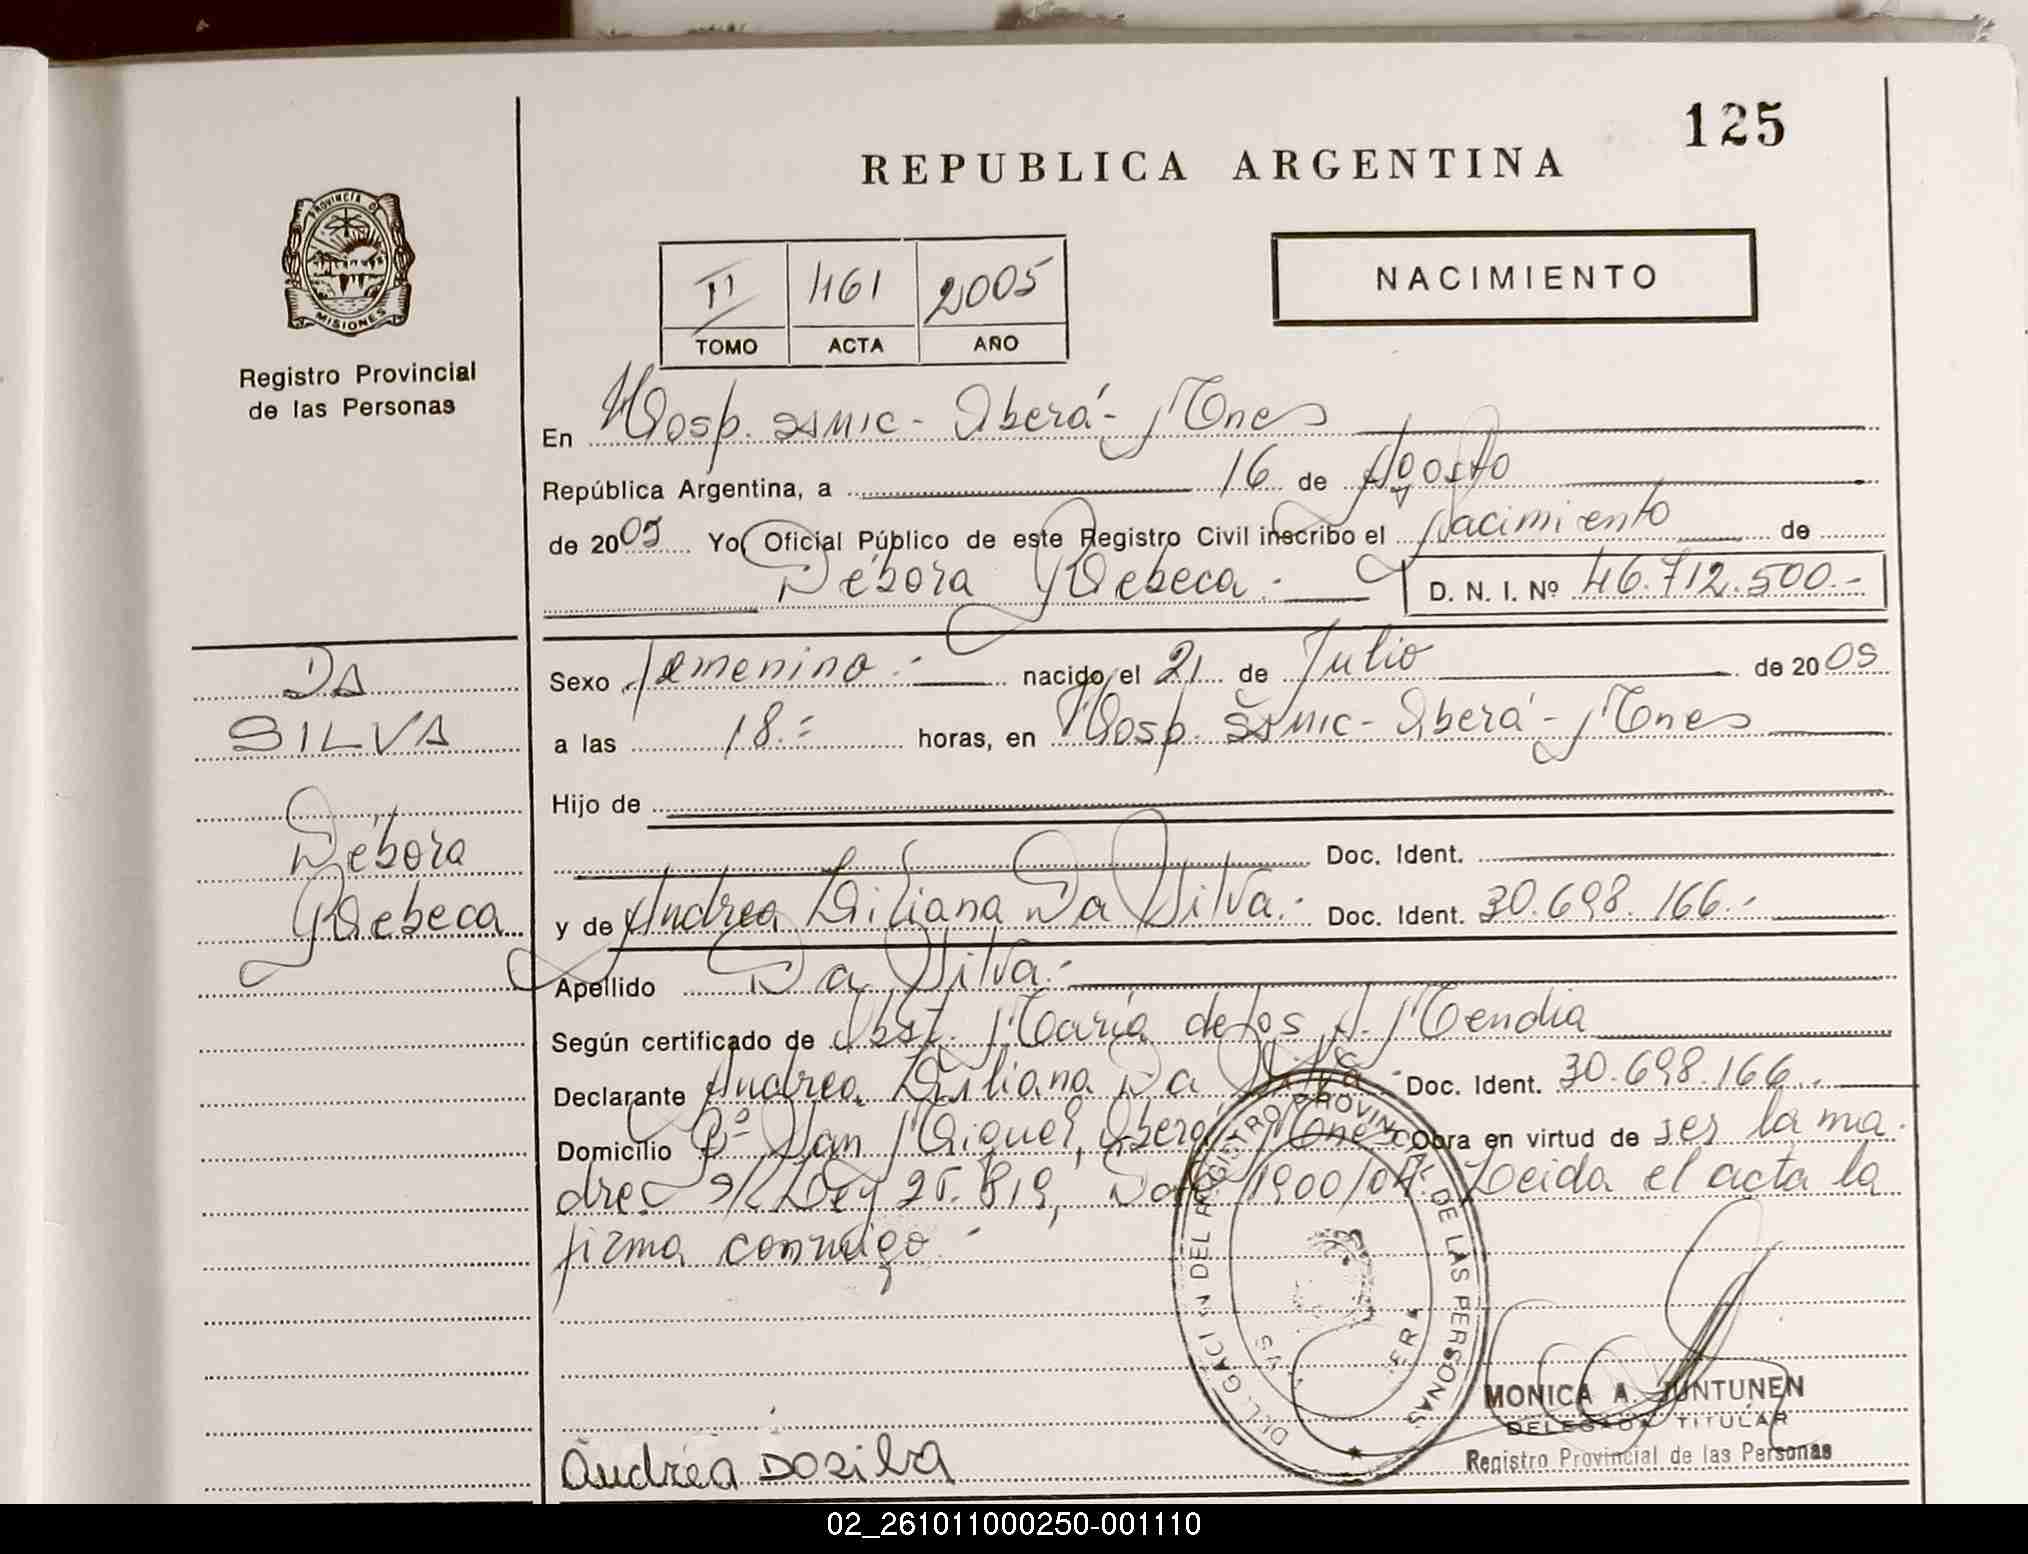 125
REPUBLICA ARGENTINA
PROVINCIA DE
MISIONES
Registro Provincial
de las Personas
NACIMIENTO
II 461 2005
TOMO ACTA AÑO
En Hosp. SAMIC - Oberá - Mnes
República Argentina, a 16 de Agosto
de 2005 Yo Oficial Público de este Registro Civil inscribo el Nacimiento de
Débora Rebeca.- D. N. I. Nº 46.712.500.-
Sexo femenino.- nacido el 21 de Julio de 2005
a las 18.= horas, en Hosp. SAMIC - Oberá - Mnes
Hijo de
Doc. Ident.
y de Andrea Liliana Da Silva.- Doc. Ident. 30.698.166.-
Apellido Da Silva.-
Según certificado de Obst. María de los A. Mendia
Declarante Andrea Liliana Da Silva.- Doc. Ident. 30.698.166.-
Domicilio Bº San Miguel, Oberá Mnes Obra en virtud de ser la ma
dre. s/ Ley 25.819, 1900/04. Leida el acta la
firma conmigo.-
DA
SILVA
Débora
Rebeca
DEL REGISTRO PROVINCIAL DE LAS PERSONAS
MONICA A. JUNTUNEN
DELEGADA TITULAR
Registro Provincial de las Personas
Andréa Dasilva
02_261011000250-001110